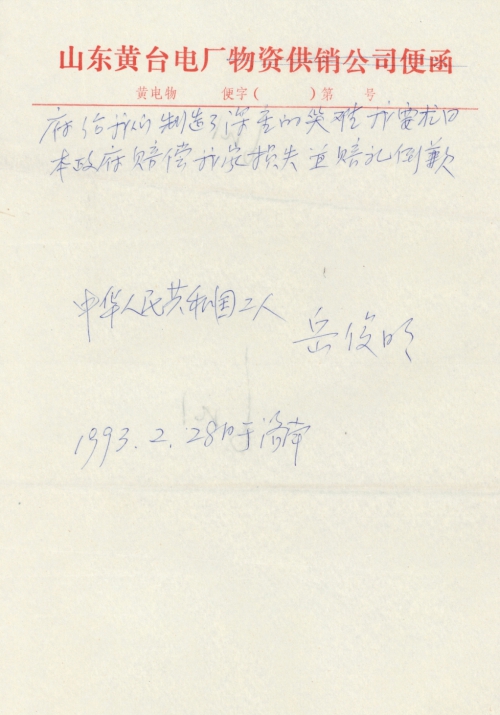 山东黄台电厂物资供销公司便函
黄电物 便字( )第 号
府给我们制造了深重的灾难我要求日
本政府赔偿我家损失并赔礼倒歉
中华人民共和国工人
岳俊明
1993.2.28日于济南